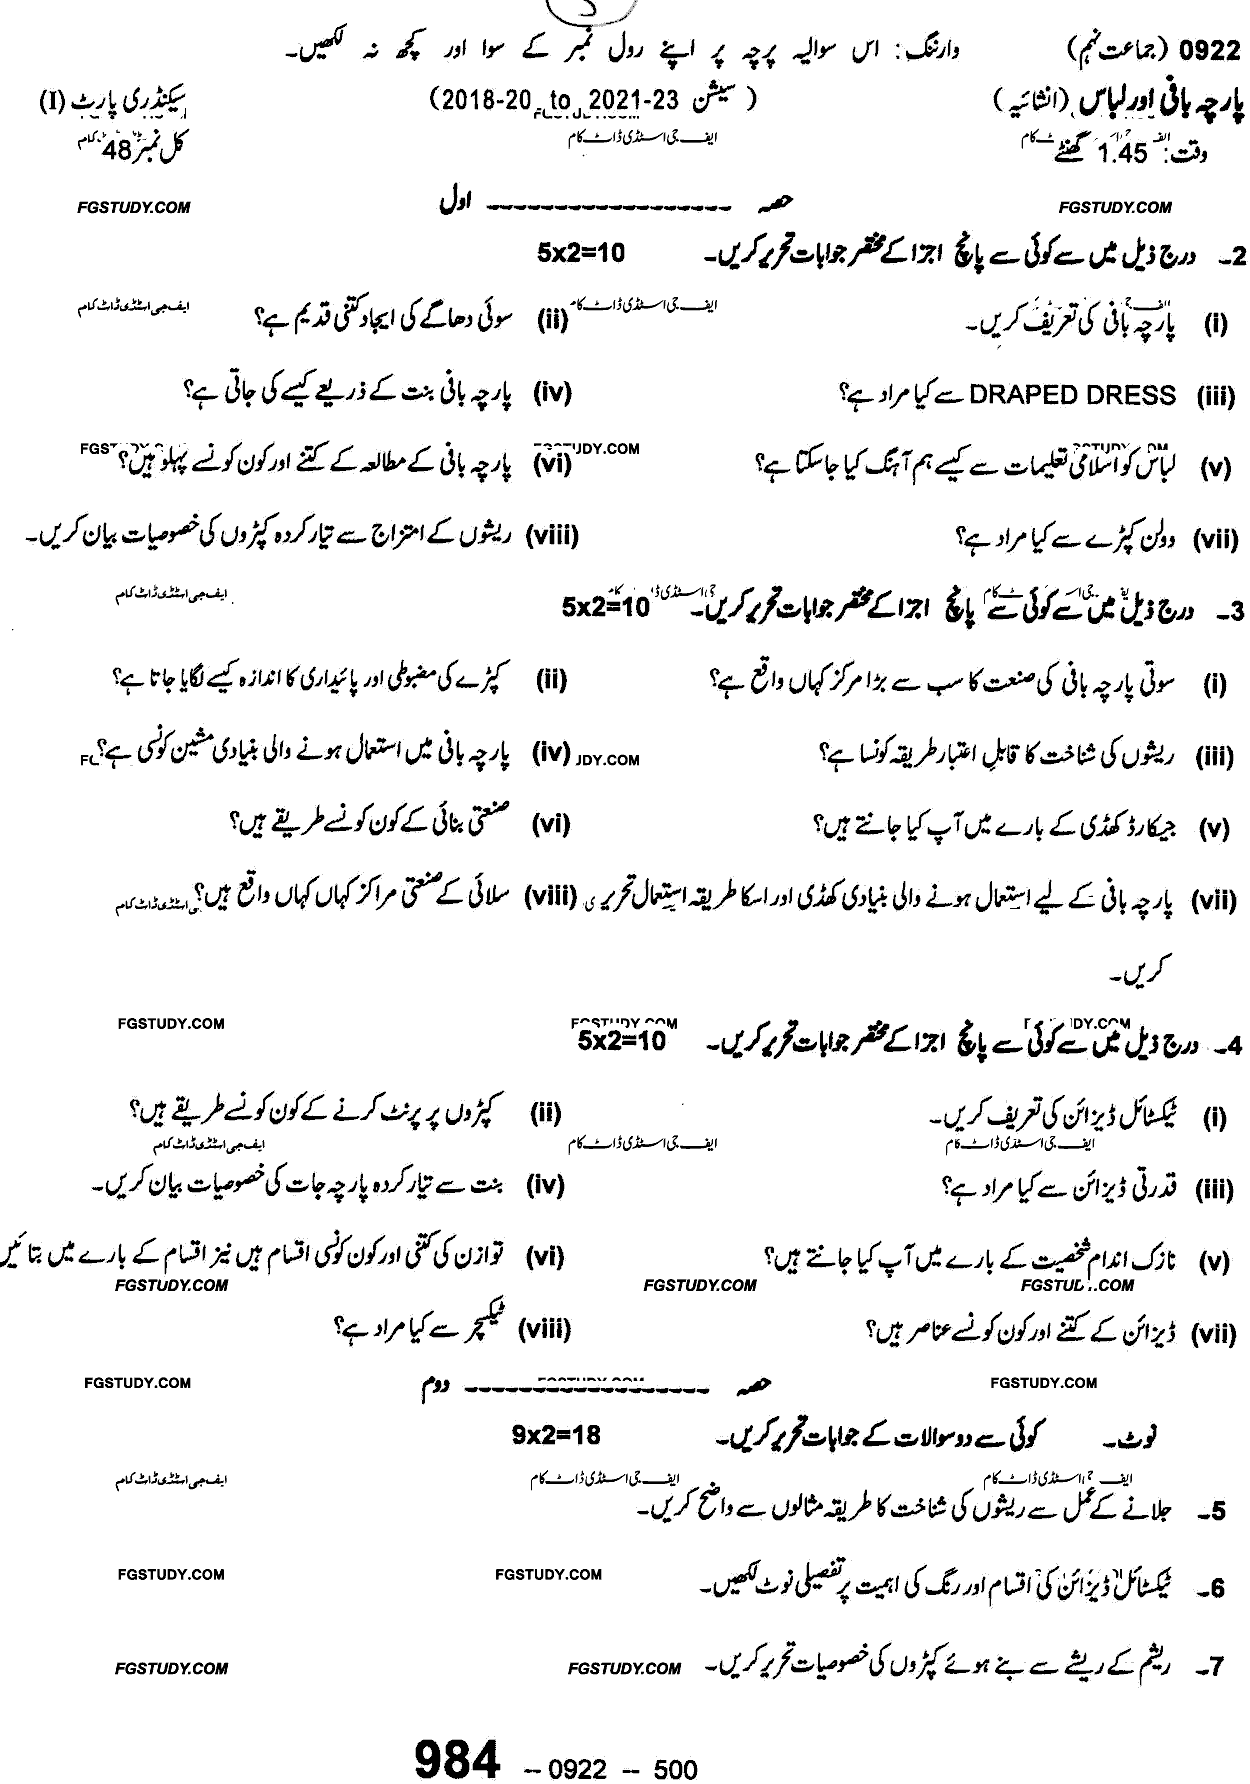 0922 (جماعت نہم) وارننگ: اس سوالیہ پرچہ پر اپنے رول نمبر کے سوا اور کچھ نہ لکھیں۔
پارچہ بافی اور لباس (انشائیہ) (سیشن 2018-20 to 2021-23) سیکنڈری پارٹ (I)
وقت: 1.45 گھنٹے ایف جی اسٹڈی ڈاٹ کام کل نمبر 48
FGSTUDY.COM حصہ ------------------ اول FGSTUDY.COM
2۔ درج ذیل میں سے کوئی سے پانچ اجزا کے مختصر جوابات تحریر کریں۔ 5x2=10
(i) پارچہ بافی کی تعریف کریں۔ ایف جی اسٹڈی ڈاٹ کام (ii) سوئی دھاگے کی ایجاد کتنی قدیم ہے؟ ایف جی اسٹڈی ڈاٹ کام
(iii) DRAPED DRESS سے کیا مراد ہے؟ (iv) پارچہ بافی بنت کے ذریعے کیسے کی جاتی ہے؟
(v) لباس کو اسلامی تعلیمات سے کیسے ہم آہنگ کیا جاسکتا ہے؟ (vi) پارچہ بافی کے مطالعہ کے کتنے اور کون کونسے پہلو ہیں؟
(vii) وولن کپڑے سے کیا مراد ہے؟ (viii) ریشوں کے امتزاج سے تیار کردہ کپڑوں کی خصوصیات بیان کریں۔
3۔ درج ذیل میں سے کوئی سے پانچ اجزا کے مختصر جوابات تحریر کریں۔ 5x2=10 ایف جی اسٹڈی ڈاٹ کام
(i) سوتی پارچہ بافی کی صنعت کا سب سے بڑا مرکز کہاں واقع ہے؟ (ii) کپڑے کی مضبوطی اور پائیداری کا اندازہ کیسے لگایا جاتا ہے؟
(iii) ریشوں کی شناخت کا قابلِ اعتبار طریقہ کونسا ہے؟ (iv) پارچہ بافی میں استعمال ہونے والی بنیادی مشین کونسی ہے؟
(v) جیکارڈ کھڈی کے بارے میں آپ کیا جانتے ہیں؟ (vi) صنعتی بنائی کے کون کونسے طریقے ہیں؟
(vii) پارچہ بافی کے لیے استعمال ہونے والی بنیادی کھڈی اور اسکا طریقہ استعمال تحریری (viii) سلائی کے صنعتی مراکز کہاں کہاں واقع ہیں؟
کریں۔
FGSTUDY.COM
4۔ درج ذیل میں سے کوئی سے پانچ اجزا کے مختصر جوابات تحریر کریں۔ 5x2=10
(i) ٹیکسٹائل ڈیزائن کی تعریف کریں۔ (ii) کپڑوں پر پرنٹ کرنے کے کون کونسے طریقے ہیں؟
ایف جی اسٹڈی ڈاٹ کام ایف جی اسٹڈی ڈاٹ کام ایف جی اسٹڈی ڈاٹ کام
(iii) قدرتی ڈیزائن سے کیا مراد ہے؟ (iv) بنت سے تیار کردہ پارچہ جات کی خصوصیات بیان کریں۔
(v) نازک اندام شخصیت کے بارے میں آپ کیا جانتے ہیں؟ (vi) توازن کی کتنی اور کون کونسی اقسام ہیں نیز اقسام کے بارے میں بتائیں
FGSTUDY.COM FGSTUDY.COM FGSTUDY.COM
(vii) ڈیزائن کے کتنے اور کون کونسے عناصر ہیں؟ (viii) ٹیکسچر سے کیا مراد ہے؟
FGSTUDY.COM حصہ ------------------ دوم FGSTUDY.COM
نوٹ۔ کوئی سے دو سوالات کے جوابات تحریر کریں۔ 9x2=18
ایف جی اسٹڈی ڈاٹ کام ایف جی اسٹڈی ڈاٹ کام ایف جی اسٹڈی ڈاٹ کام
5۔ جلانے کے عمل سے ریشوں کی شناخت کا طریقہ مثالوں سے واضح کریں۔
6۔ ٹیکسٹائل ڈیزائن کی اقسام اور رنگ کی اہمیت پر تفصیلی نوٹ لکھیں۔ FGSTUDY.COM FGSTUDY.COM
7۔ ریشم کے ریشے سے بنے ہوئے کپڑوں کی خصوصیات تحریر کریں۔ FGSTUDY.COM FGSTUDY.COM
984 -- 0922 -- 500